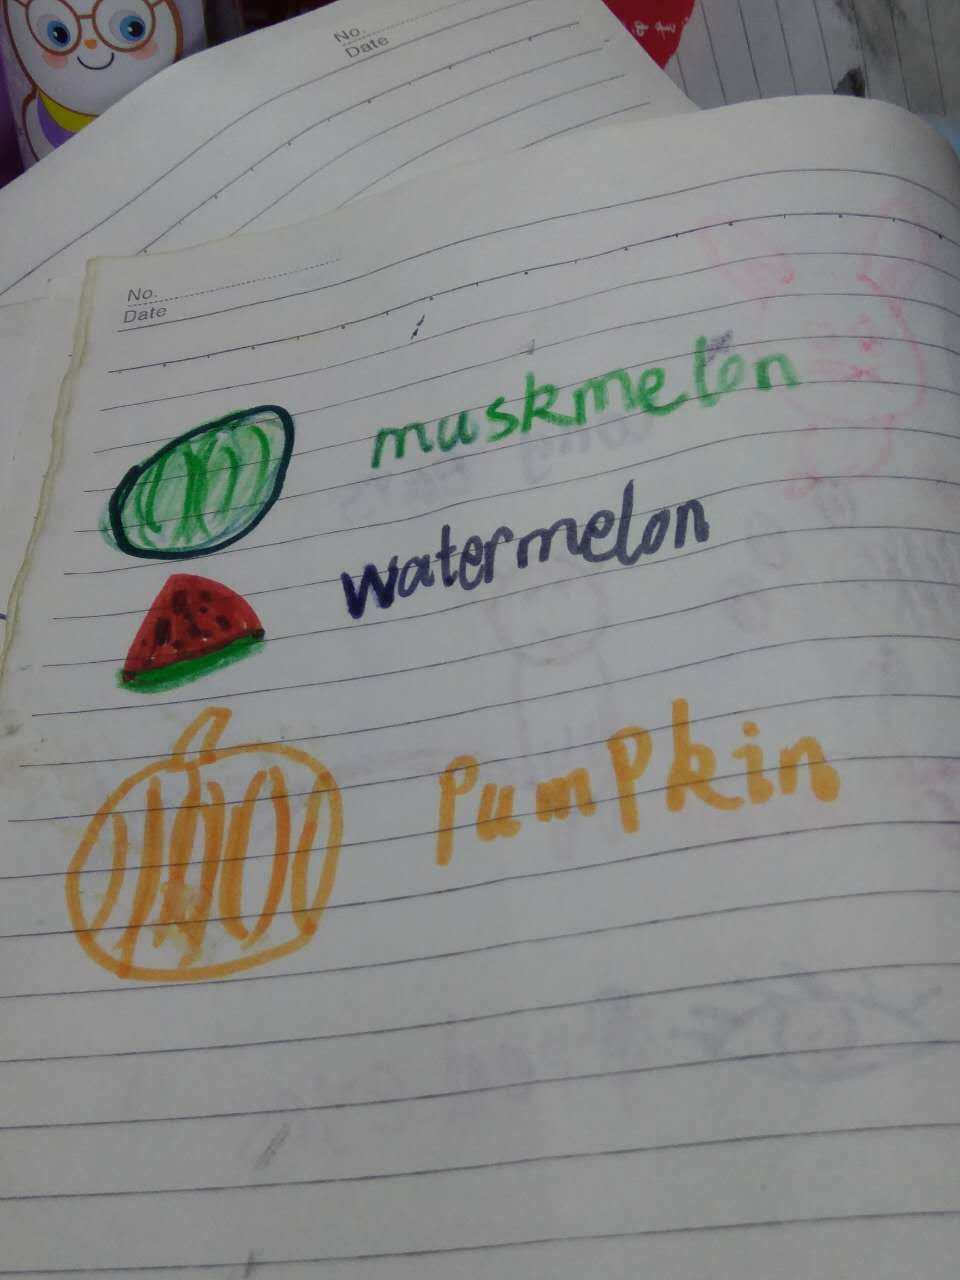 No.
Date
No.
Date
muskmelon
watermelon
Pumpkin